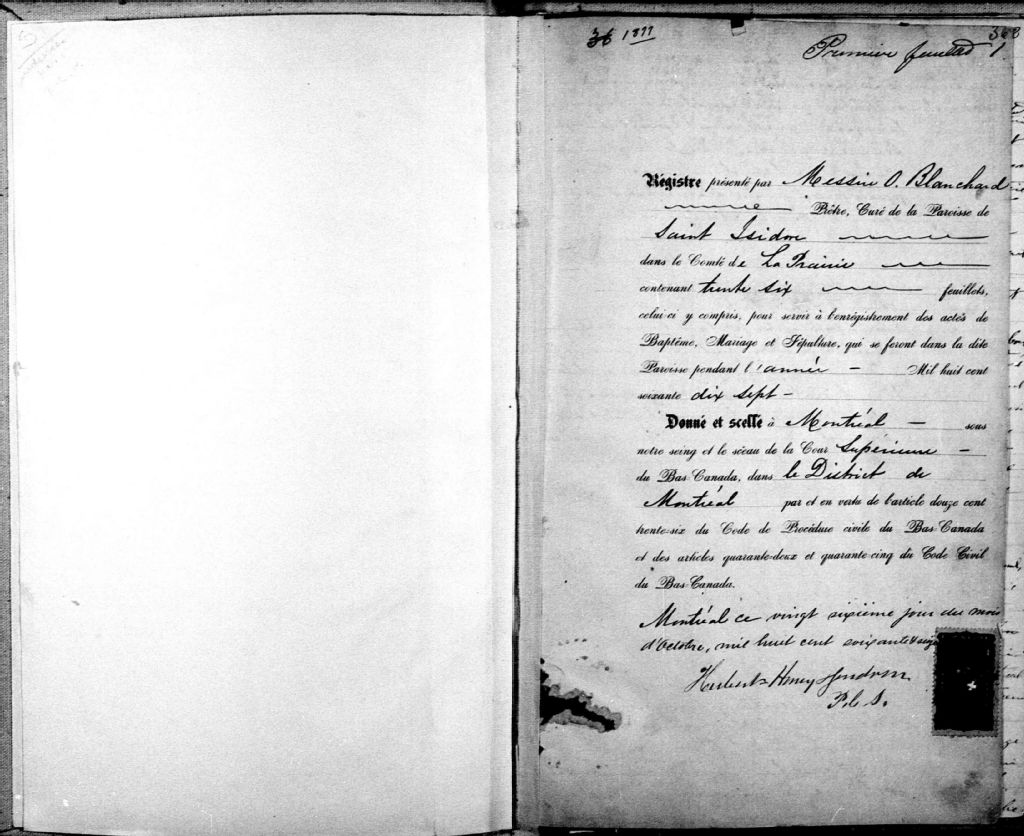 36 1877
368
Première feuillet 1
Régistre présenté par Messire O. Blanchard
Prêtre, Curé de la Paroisse de
Saint Isidore
dans le Comté de La Prairie
contenant trente six feuillets,
celui-ci y compris, pour servir à l'enrégistrement des actes de
Baptême, Mariage et Sépulture, qui se feront dans la dite
Paroisse pendant l'année Mil huit cent
soixante dix sept
Donné et scellé à Montréal sous
notre seing et le sceau de la Cour Supérieure
du Bas-Canada, dans le District de
Montréal par et en vertu de l'article douze cent
trente-six du Code de Procédure civile du Bas-Canada
et des articles quarante-deux et quarante-cinq du Code Civil
du Bas-Canada.
Montréal ce vingt sixième jour du mois
d'Octobre, mil huit cent soixante & seize
Hubert Henry Gendron
P.C.S.